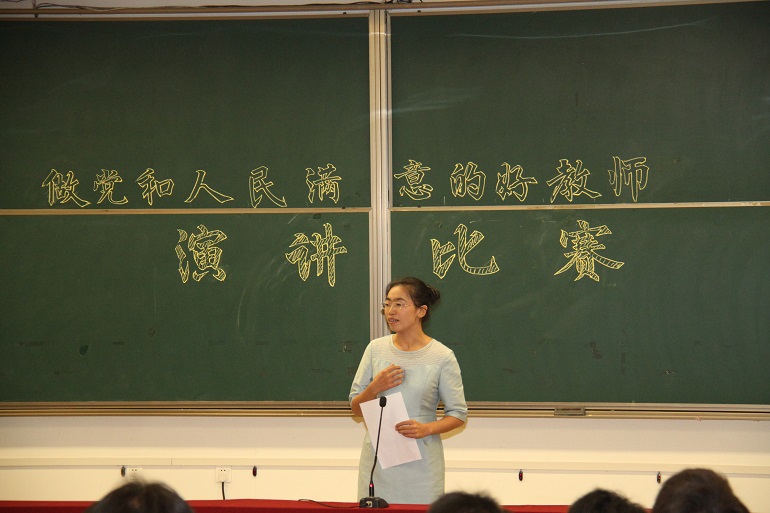 做党和人民满意的好教师
演讲比赛